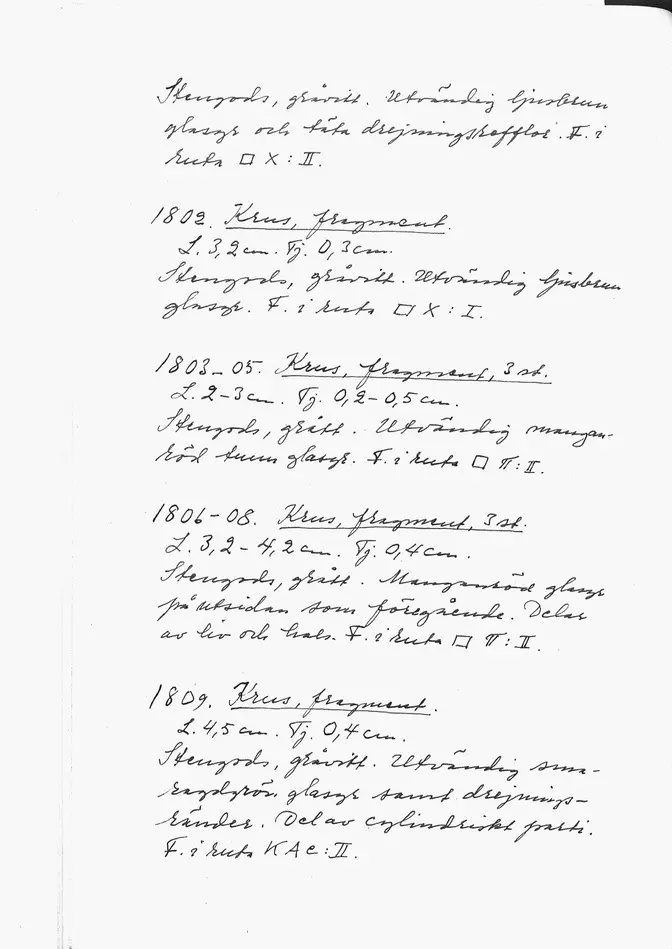 Stengods, gråvitt. Utvändig ljusbrun
glasyr och täta drejningsrefflor. F. i
ruta □ X : II.
1802. Krus, fragment.
L. 3,2 cm. Tj. 0,3 cm.
Stengods, gråvitt. Utvändig ljusbrun
glasyr. F. i ruta □ X : I.
1803–05. Krus, fragment, 3 st.
L. 2–3 cm. Tj. 0,2–0,5 cm.
Stengods, grått. Utvändig mangan-
röd tunn glasyr. F. i ruta □ π : II.
1806–08. Krus, fragment, 3 st.
L. 3,2–4,2 cm. Tj. 0,4 cm.
Stengods, grått. Manganröd glasyr
på utsidan som föregående. Delar
av liv och hals. F. i ruta □ π : II.
1809. Krus, fragment.
L. 4,5 cm. Tj. 0,4 cm.
Stengods, gråvitt. Utvändig sma-
ragdgrön glasyr samt drejnings-
ränder. Del av cylindriskt parti.
F. i ruta KAc : II.